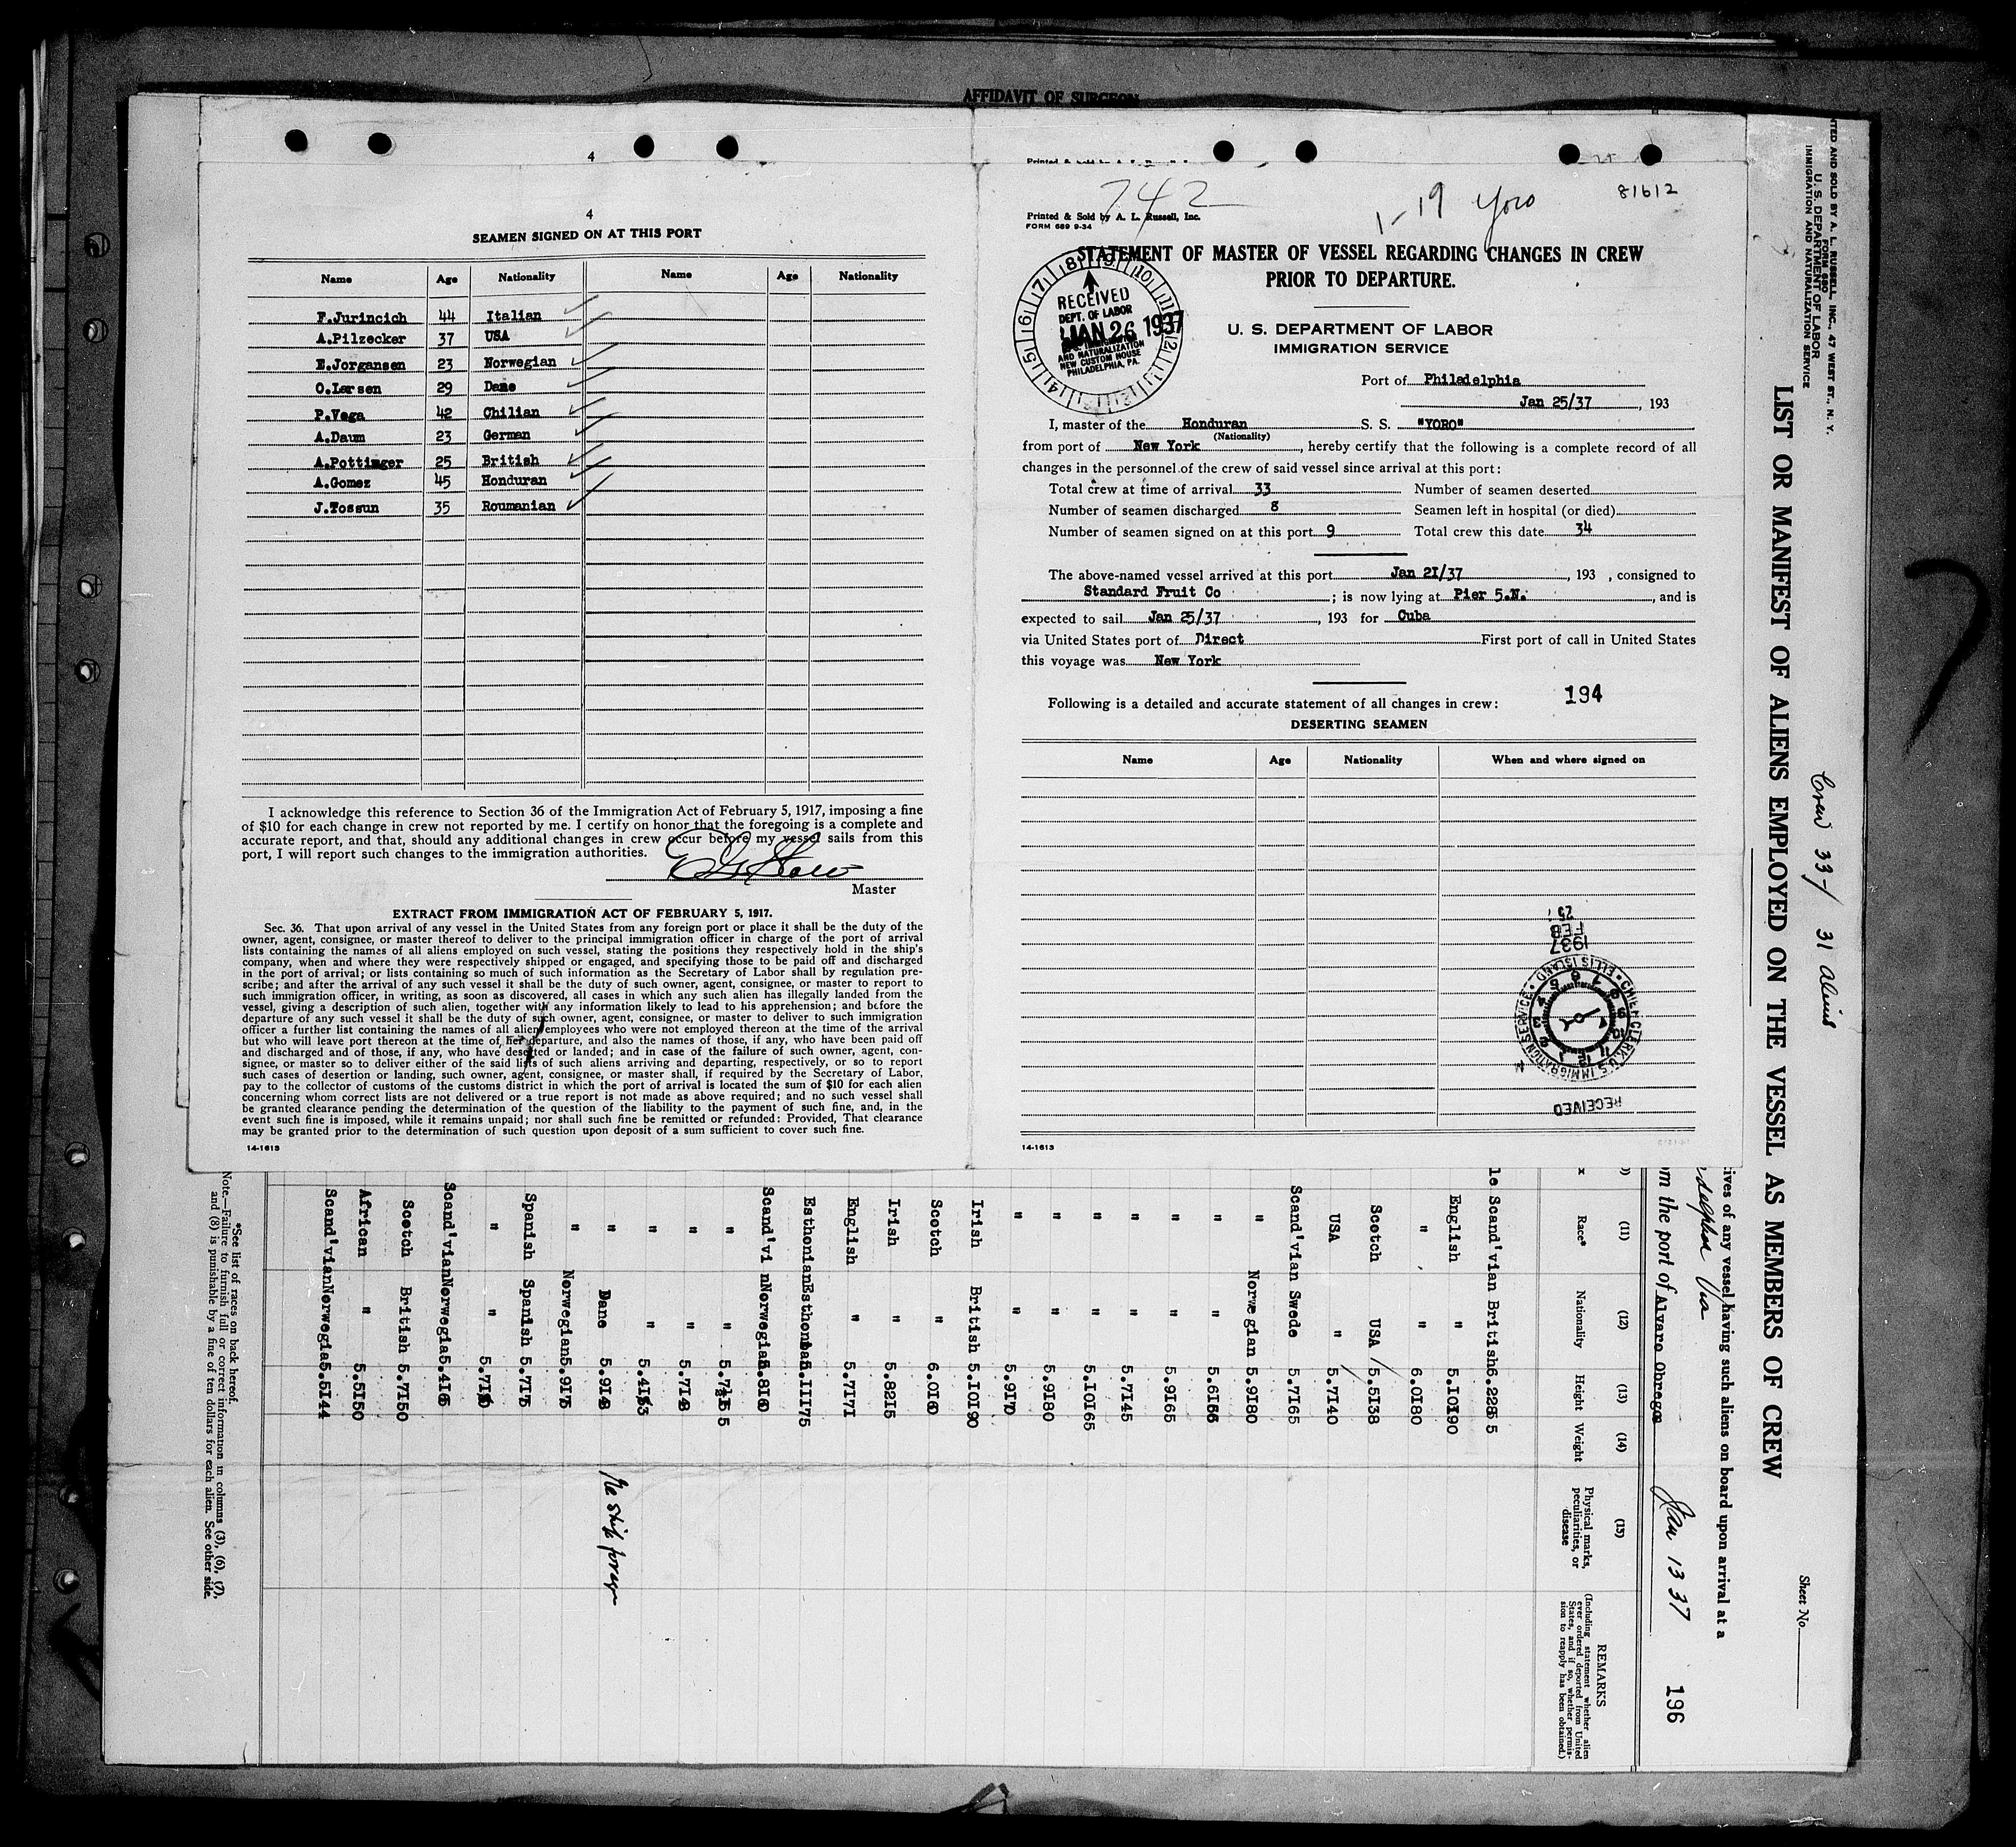 AFFIDAVIT OF SURGEON
4
4
SEAMEN SIGNED ON AT THIS PORT
Name Age Nationality Name Age Nationality
F.Jurincich 44 Italian
A.Pilzecker 37 USA
E.Jorgensen 23 Norwegian
O.Larsen 29 Dane
P.Vega 42 Chilian
A.Daum 23 German
A.Pottinger 25 British
A.Gomez 45 Honduran
J.Tossun 35 Roumanian
I acknowledge this reference to Section 36 of the Immigration Act of February 5, 1917, imposing a fine
of $10 for each change in crew not reported by me. I certify on honor that the foregoing is a complete and
accurate report, and that, should any additional changes in crew occur before my vessel sails from this
port, I will report such changes to the immigration authorities.
Master
EXTRACT FROM IMMIGRATION ACT OF FEBRUARY 5, 1917.
Sec. 36. That upon arrival of any vessel in the United States from any foreign port or place it shall be the duty of the
owner, agent, consignee, or master thereof to deliver to the principal immigration officer in charge of the port of arrival
lists containing the names of all aliens employed on such vessel, stating the positions they respectively hold in the ship's
company, when and where they were respectively shipped or engaged, and specifying those to be paid off and discharged
in the port of arrival; or lists containing so much of such information as the Secretary of Labor shall by regulation pre-
scribe; and after the arrival of any such vessel it shall be the duty of such owner, agent, consignee, or master to report to
such immigration officer, in writing, as soon as discovered, all cases in which any such alien has illegally landed from the
vessel, giving a description of such alien, together with any information likely to lead to his apprehension; and before the
departure of any such vessel it shall be the duty of such owner, agent, consignee, or master to deliver to such immigration
officer a further list containing the names of all alien employees who were not employed thereon at the time of the arrival
but who will leave port thereon at the time of her departure, and also the names of those, if any, who have been paid off
and discharged and of those, if any, who have deserted or landed; and in case of the failure of such owner, agent, con-
signee, or master so to deliver either of the said lists of such aliens arriving and departing, respectively, or so to report
such cases of desertion or landing, such owner, agent, consignee, or master shall, if required by the Secretary of Labor,
pay to the collector of customs of the customs district in which the port of arrival is located the sum of $10 for each alien
concerning whom correct lists are not delivered or a true report is not made as above required; and no such vessel shall
be granted clearance pending the determination of the question of the liability to the payment of such fine, and, in the
event such fine is imposed, while it remains unpaid; nor shall such fine be remitted or refunded: Provided, That clearance
may be granted prior to the determination of such question upon deposit of a sum sufficient to cover such fine.
14-1613
742
1-19 Yoro
81612
Printed & Sold by A. L. Russell, Inc.
FORM 689 9-34
STATEMENT OF MASTER OF VESSEL REGARDING CHANGES IN CREW
PRIOR TO DEPARTURE.
RECEIVED
DEPT. OF LABOR
JAN 26 1937
AND NATURALIZATION
NEW CUSTOM HOUSE
PHILADELPHIA, PA.
U. S. DEPARTMENT OF LABOR
IMMIGRATION SERVICE
Port of Philadelphia
Jan 25/37, 193
I, master of the Honduran S. S. "YORO"
(Nationality)
from port of New York, hereby certify that the following is a complete record of all
changes in the personnel of the crew of said vessel since arrival at this port:
Total crew at time of arrival 33 Number of seamen deserted
Number of seamen discharged 8 Seamen left in hospital (or died)
Number of seamen signed on at this port 9 Total crew this date 34
The above-named vessel arrived at this port Jan 21/37, 193 , consigned to
Standard Fruit Co ; is now lying at Pier 5.N. , and is
expected to sail Jan 25/37, 193 for Cuba
via United States port of Direct First port of call in United States
this voyage was New York
Following is a detailed and accurate statement of all changes in crew:
194
DESERTING SEAMEN
Name Age Nationality When and where signed on
25
FEB
1937
CHIEF CLERK, U.S. IMMIGRATION SERVICE • ELLIS ISLAND
RECEIVED
14-1613
PRINTED AND SOLD BY A. L. RUSSELL, INC., 47 WEST ST., N. Y.
FORM 680
U. S. DEPARTMENT OF LABOR
IMMIGRATION AND NATURALIZATION SERVICE
Crew 33-/ 31 aliens
Sheet No.
LIST OR MANIFEST OF ALIENS EMPLOYED ON THE VESSEL AS MEMBERS OF CREW
ives of any vessel having such aliens on board upon arrival at a
adelphia Via
om the port of Alvaro Obregon Jan 13 37
196
(11) (12) (13) (14) (15)
Race* Nationality Height Weight Physical marks, peculiarities, or disease
REMARKS
(Including statement whether alien
ever ordered deported from United
States, and if so, whether permis-
sion to reapply has been obtained.)
le Scand'vian British 6.2
English " 5.10 190
" " 6.0 180
Scotch USA 5.5 138
USA " 5.7 140
Scand'vian Swede 5.7 165
" Norwegian 5.9 180
" " 5.6
" " 5.9 165
" " 5.7 145
" " 5.10 165
" " 5.9 180
" " 5.9 170
Irish British 5.10 190
Scotch " 6.0 160
Irish " 5.8 215
English " 5.7 171
Esthonian Esthonian 5.11 175
Scand'vi n Norwegian 5.8 160
" " 5.7
" " 5.7
" " 5.4
" Dane 5.9 Re ship foreign
" Norwegian 5.9 175
Spanish Spanish 5.7 175
" " 5.7
Scand'vian Norwegia 5.4
Scotch British 5.7 150
African " 5.5 150
Scand'vian Norwegia 5.5 144
*See list of races on back hereof.
Note.—Failure to furnish full or correct information in columns (3), (6), (7),
and (8) is punishable by a fine of ten dollars for each alien. See other side.